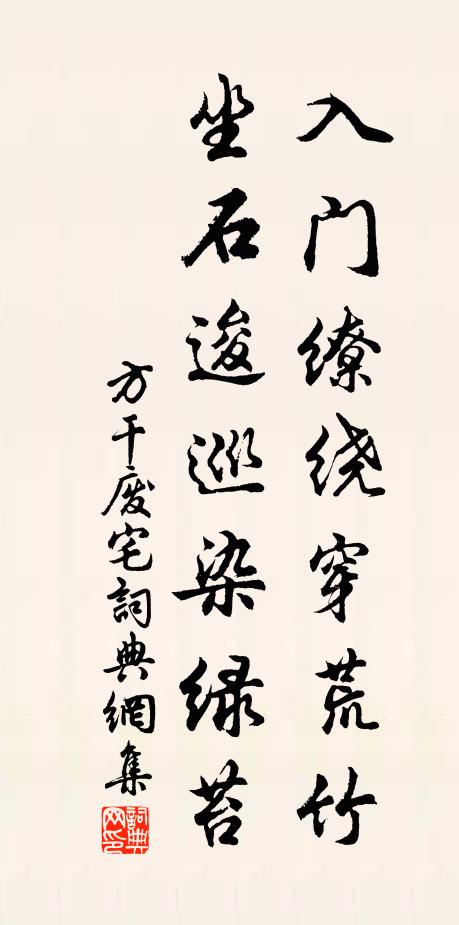 入门缭绕穿荒竹
坐石逡巡染绿苔
方干废宅词典網集
詞典网印